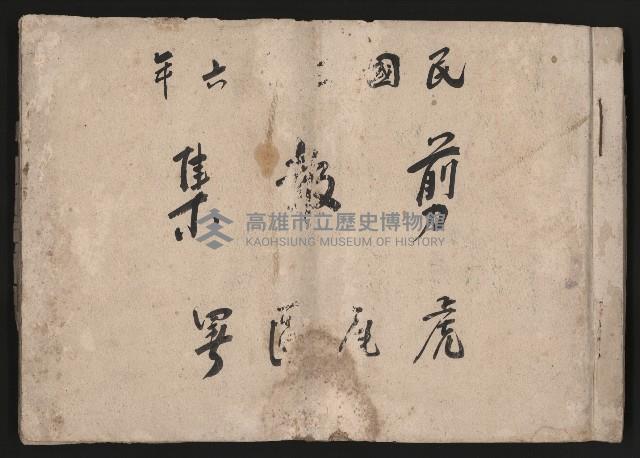 民國 六年
剪報集
虎尾區署
高雄市立歷史博物館
KAOHSIUNG MUSEUM OF HISTORY